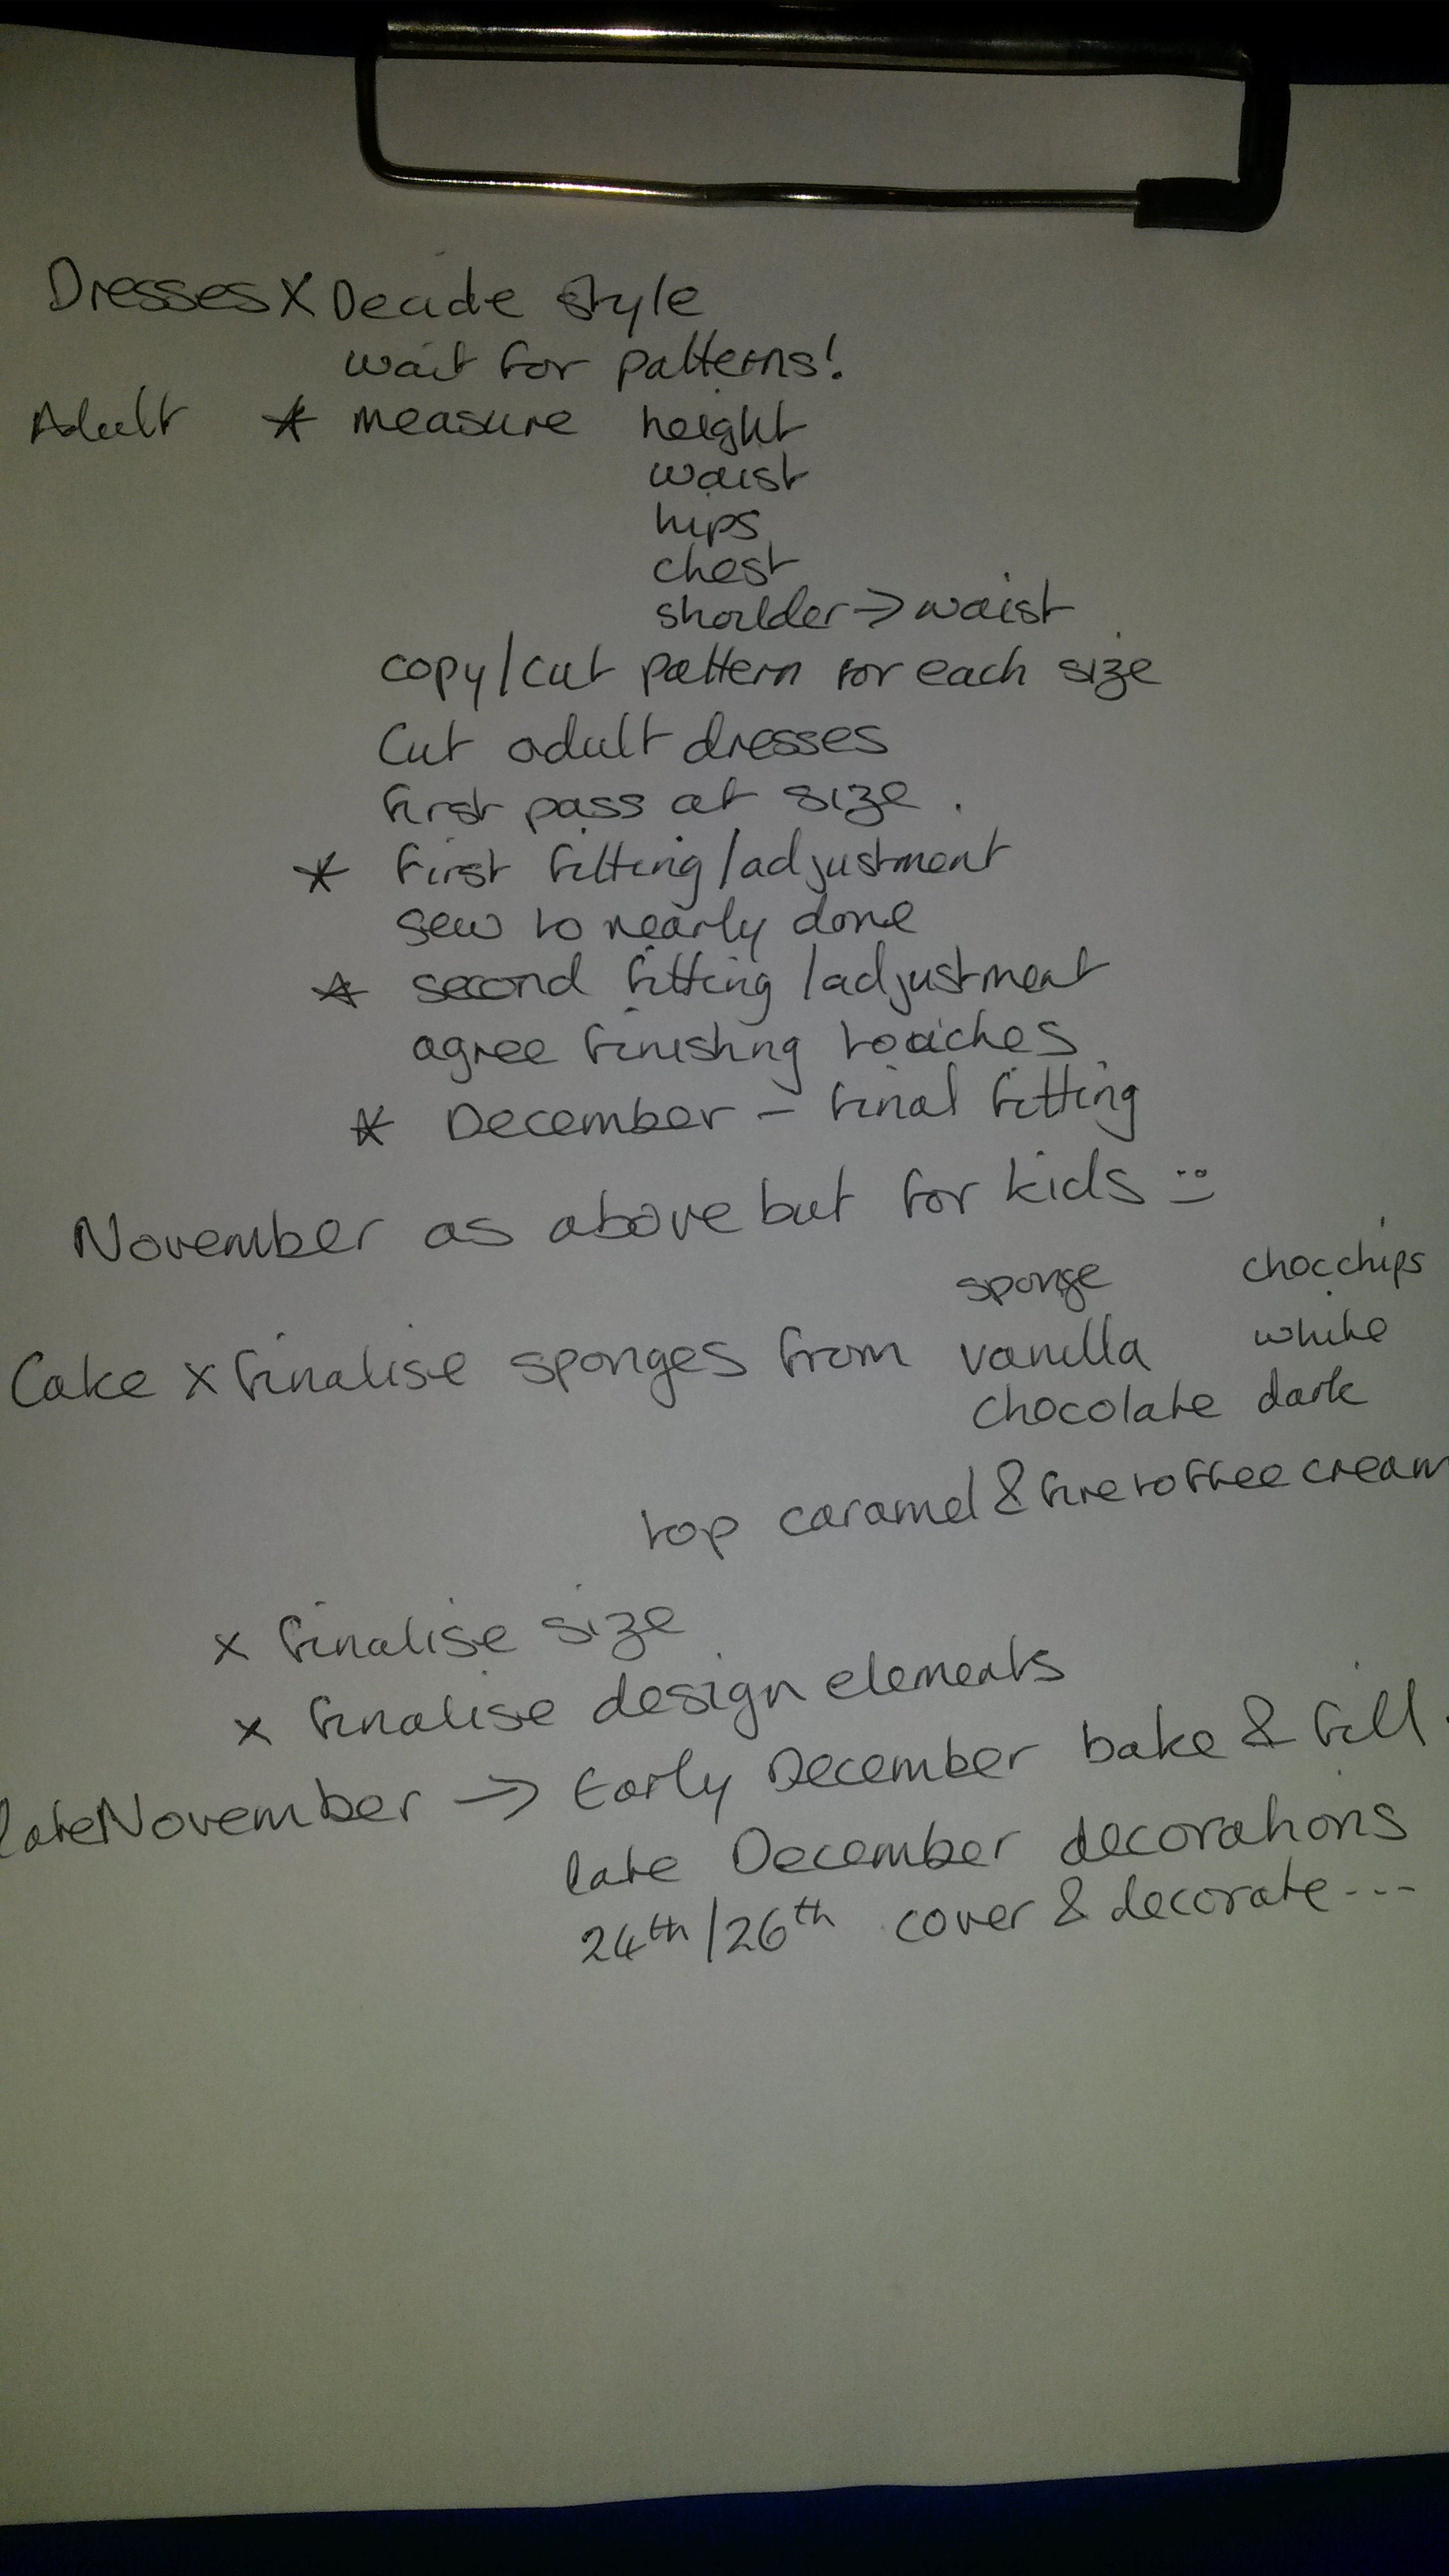 Dresses X Decide style
wait for patterns!
Adult * measure height
waist
hips
chest
shoulder → waist
copy/cut pattern for each size
Cut adult dresses
first pass at size.
* first fitting/adjustment
sew to nearly done
* second fitting/adjustment
agree finishing touches
* December - final fitting
November as above but for kids :)
sponge chocchips
Cake x finalise sponges from vanilla white
chocolate dark
top caramel & toffee cream
x finalise size
x finalise design elements
late November → Early December bake & fill.
late December decorations
24th/26th cover & decorate...